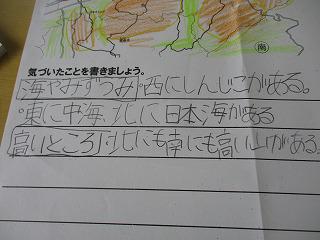 南
気づいたことを書きましょう。
海やみずうみ・西にしんじこがある。
・東に中海、北に日本海がある
高いところ・北にも南にも高い山がある。